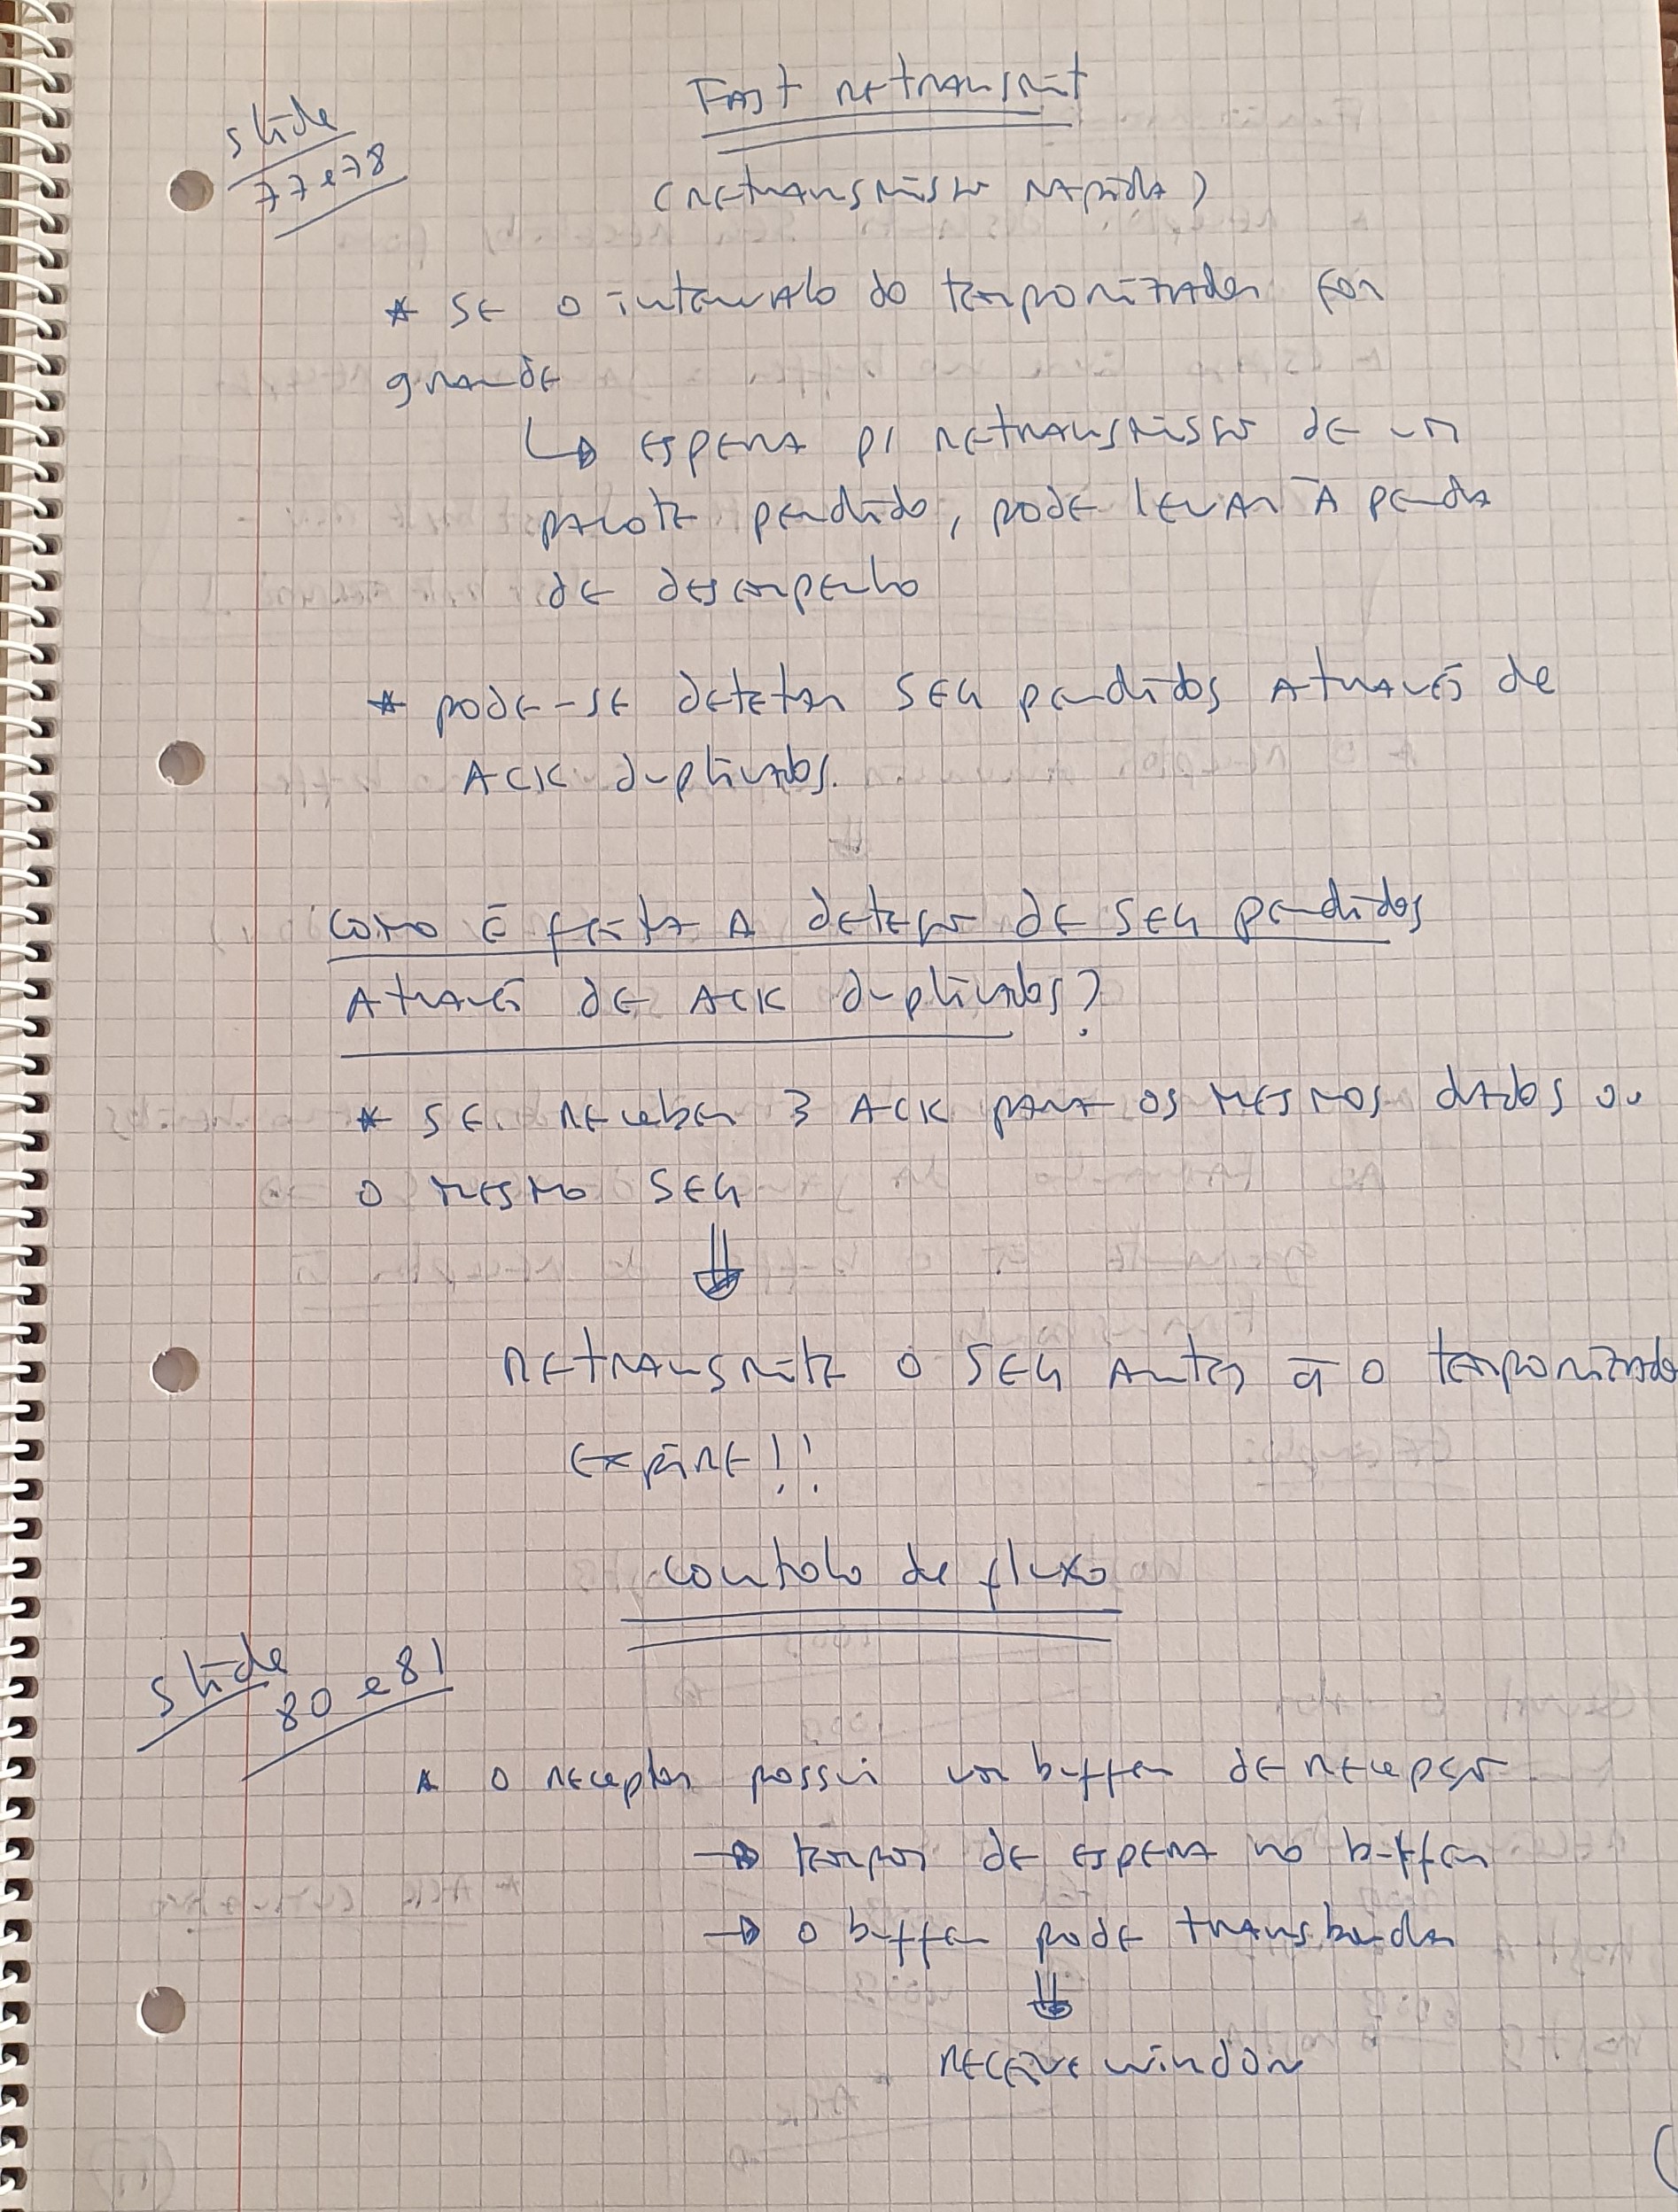 Fast retransmit
slide
77 e 78
(retransmissão rápida)
* se o intervalo do temporizador for
grande
↳ espera p/ retransmissão de um
pacote perdido, pode levar à perda
de desempenho
* pode-se detetar SEG perdidos através de
ACK duplicados.
como é feita a deteção de SEG perdidos
através de ACK duplicados?
* se receber 3 ACK para os mesmos dados ou
o mesmo SEG
⇓
retransmite o SEG antes q̄ o temporizador
expire!!
controlo de fluxo
slide
80 e 81
* o receptor possui um buffer de recepção
→ tempos de espera no buffer
→ o buffer pode transbordar
⇓
receive window